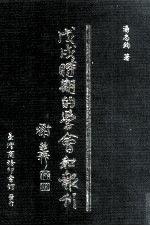 湯志鈞 著
戊戌時期的學會和報刊
臺灣商務印書館 發行